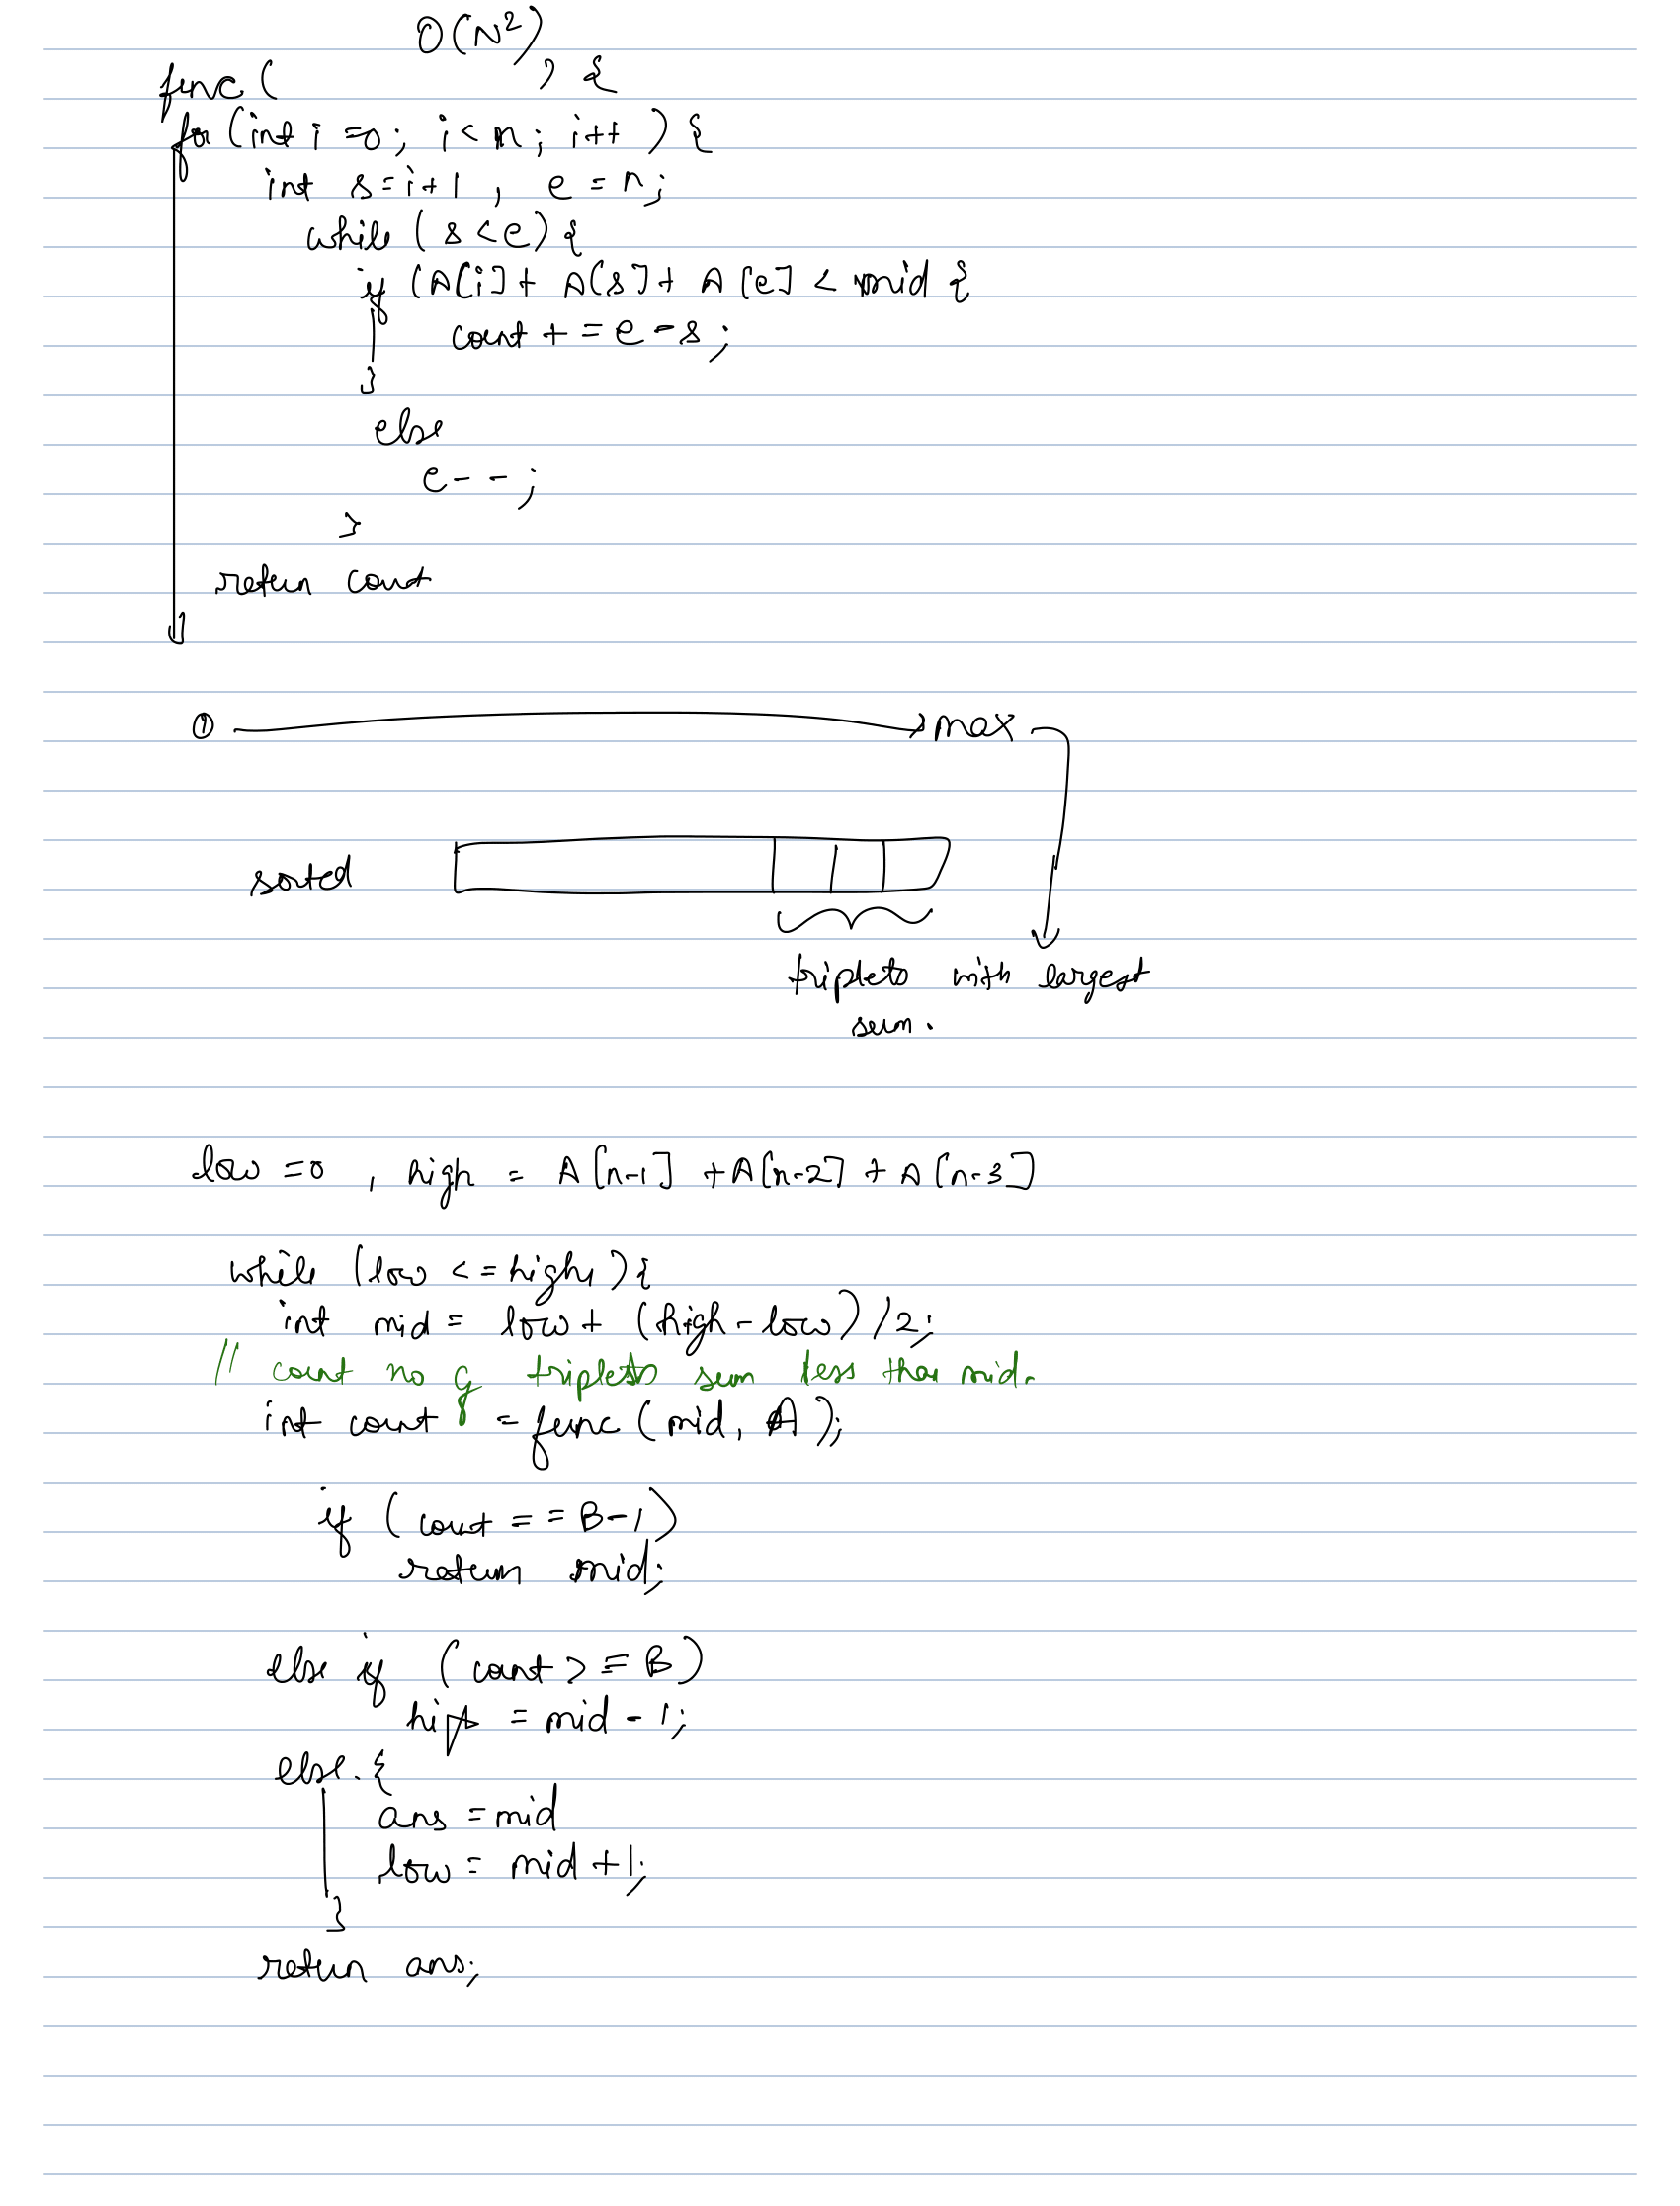 O(N²)
func ( ) {
for (int i =0; i< n; i++ ) {
int s=i+1 , e = n;
while ( s <e) {
if (A[i]+ A[s]+ A[e] < mid {
count + = e-s;
}
else
e--;
}
return count
}
0 → max
sorted
triplets with largest
sum.
low =0 , high = A[n-1] +A[n-2] + A[n-3]
while (low <=high){
int mid = low+ (high-low)/2;
// count no of triplets sum less than mid.
int count =func (mid, A);
if (count == B-1)
return mid;
else if (count >= B)
high = mid - 1;
else {
ans =mid
low = mid +1;
}
return ans;